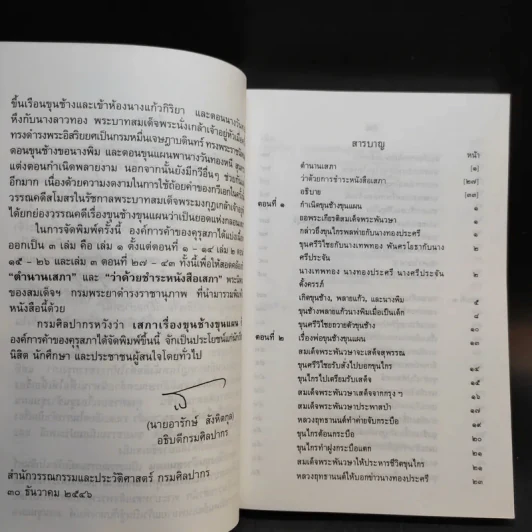 ขึ้นเรือนขุนช้างและเข้าห้องนางแก้วกิริยา และตอนนางวัน
หึงกับนางลาวทอง พระบาทสมเด็จพระนั่งเกล้าเจ้าอยู่หัวเมื่อ
ทรงดำรงพระอิสริยยศเป็นกรมหมื่นเจษฎาบดินทร์ ทรงพระราช
ตอนขุนช้างขอนางพิม และตอนขุนแผนพานางวันทองหนี
แต่งตอนกำเนิดพลายงาม นอกจากนั้นยังมีกวีอื่นๆ ช่วย
อีกมาก เนื่องด้วยความงดงามในการใช้ถ้อยคำของกวีเอก
วรรณคดีสโมสรในรัชกาลพระบาทสมเด็จพระมงกุฎเกล้าเจ้าอยู่
ได้ยกย่องวรรณคดีเรื่องขุนช้างขุนแผนว่าเป็นยอดแห่งกลอน
ในการจัดพิมพ์ครั้งนี้ องค์การค้าของคุรุสภาได้แบ่ง
ออกเป็น ๓ เล่ม คือ เล่ม ๑ ตั้งแต่ตอนที่ ๑ - ๑๔ เล่ม ๒
๑๕ - ๒๖ และเล่ม ๓ ตอนที่ ๒๗ - ๔๓ ทั้งนี้เพื่อให้สอดคล้อง
"ตำนานเสภา" และ "ว่าด้วยชำระหนังสือเสภา"
ของสมเด็จฯ กรมพระยาดำรงราชานุภาพ ที่นำมารวมพิมพ์
หนังสือนี้ด้วย
กรมศิลปากรหวังว่า เสภาเรื่องขุนช้างขุนแผน
องค์การค้าของคุรุสภาได้จัดพิมพ์ขึ้นนี้ จักเป็นประโยชน์แก่
นิสิต นักศึกษา และประชาชนผู้สนใจโดยทั่วไป
(นายอารักษ์ สังหิตกุล)
อธิบดีกรมศิลปากร
สำนักวรรณกรรมและประวัติศาสตร์ กรมศิลปากร
๓๐ ธันวาคม ๒๕๔๖
สารบาญ
หน้า
ตำนานเสภา [๑]
ว่าด้วยการชำระหนังสือเสภา [๒๗]
อธิบาย [๓๓]
ตอนที่ ๑ กำเนิดขุนช้างขุนแผน ๑
ยอพระเกียรติสมเด็จพระพันวษา ๑
กล่าวถึงขุนไกรพลพ่ายกับนางทองประศรี ๑
ขุนศรีวิไชยกับนางเทพทอง พันศรโยธากับนาง
ศรีประจัน ๒
นางเทพทอง นางทองประศรี นางศรีประจัน
ตั้งครรภ์ ๒
เกิดขุนช้าง, พลายแก้ว, และนางพิม ๕
ขุนช้างพลายแก้วนางพิมเมื่อเป็นเด็ก ๘
ขุนศรีวิไชยถวายตัวขุนช้าง ๑๐
ตอนที่ ๒ เรื่องพ่อขุนช้างขุนแผน ๑๔
สมเด็จพระพันวษาจะเสด็จสุพรรณ ๑๔
ขุนศรีวิไชยรับสั่งไปบอกขุนไกร ๑๔
ขุนไกรไปเตรียมรับเสด็จ ๑๕
สมเด็จพระพันวษาเสด็จจากกรุง ฯ ๑๖
สมเด็จพระพันวษาประพาสป่า ๑๗
หลวงฤทธานนต์ทำค่ายจับกระบือ ๑๙
ขุนไกรต้อนกระบือ ๒๐
ขุนไกรทำฝูงกระบือแตก ๒๑
สมเด็จพระพันวษาให้ประหารชีวิตขุนไกร ๒๑
หลวงฤทธานนต์ให้บอกข่าวนางทองประศรี ๒๓